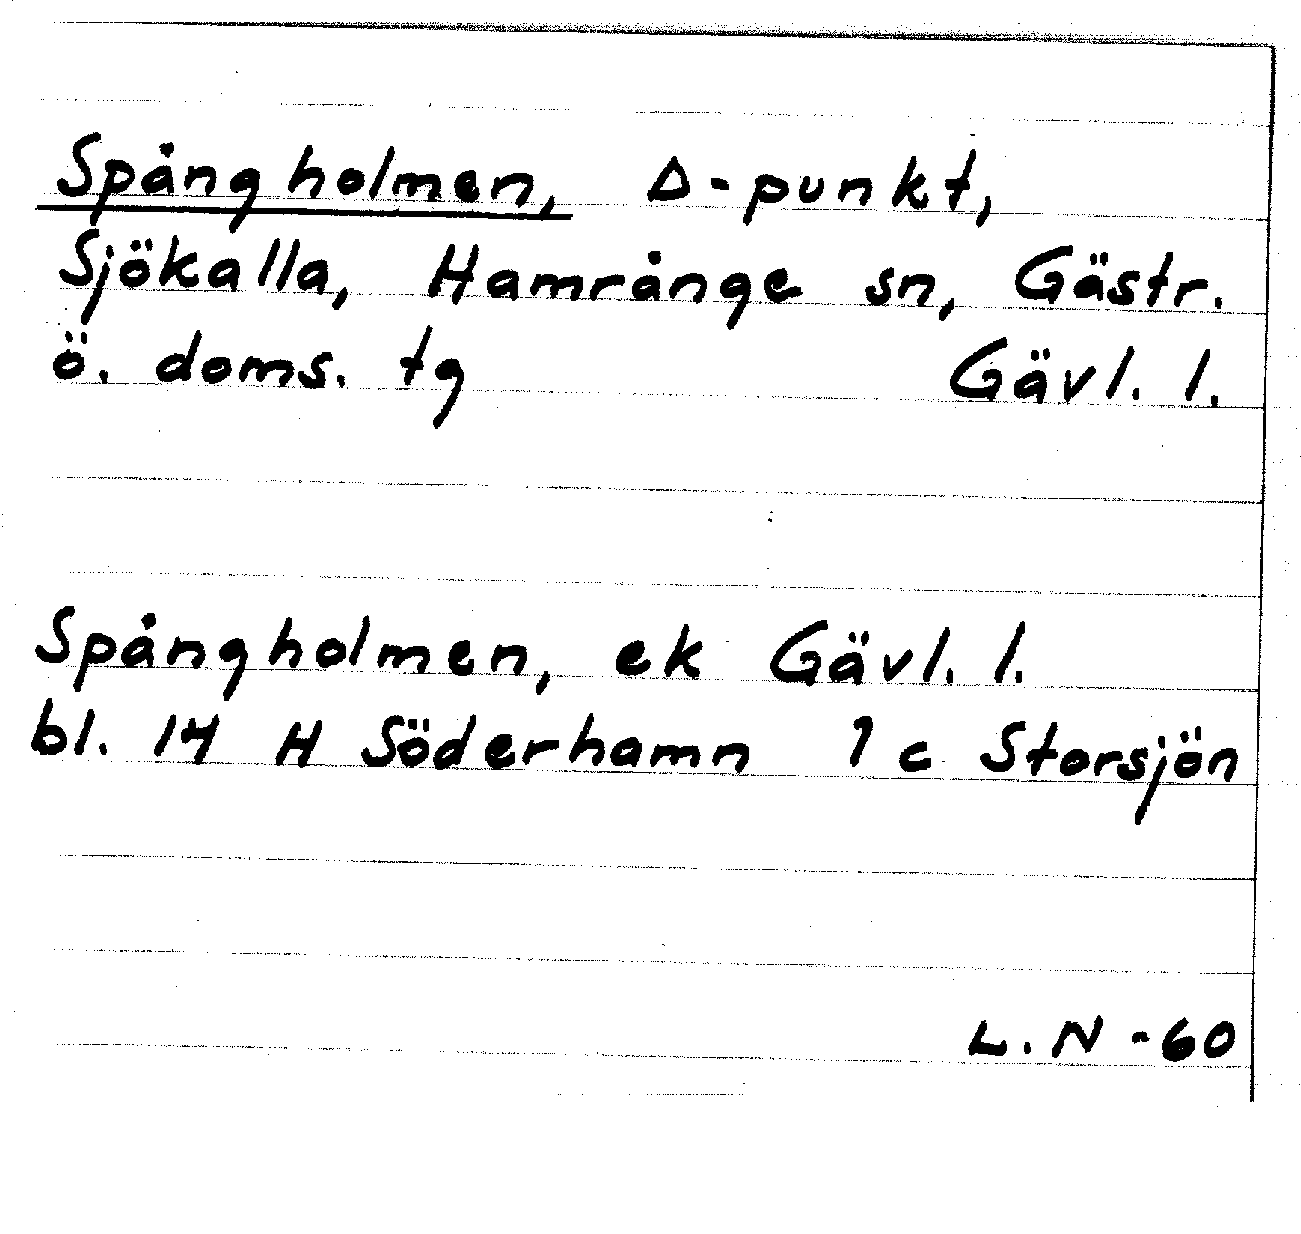 Spångholmen, Δ-punkt,
Sjökalla, Hamrånge sn, Gästr.
ö. doms. tg Gävl. l.
Spångholmen, ek Gävl. l.
bl. 14 H Söderhamn 1 c Storsjön
L. N -60